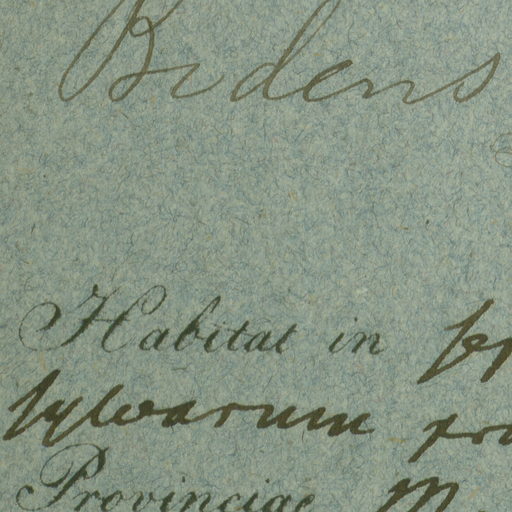 Bidens
Habitat in
sylvarum
Provinciae M